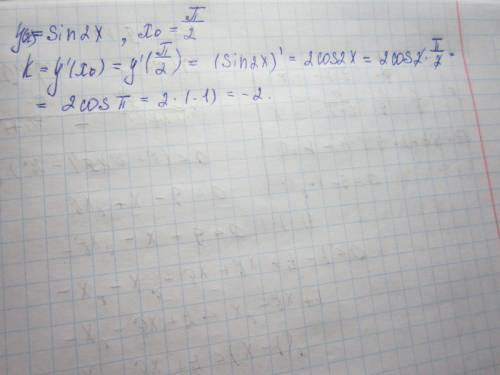 y(x) = Sin2x ; x₀ = π/2
K = y'(x₀) = y'(π/2) = (Sin2x)' = 2cos2x = 2cos2·π/2 =
= 2cos π = 2·(-1) = -2.